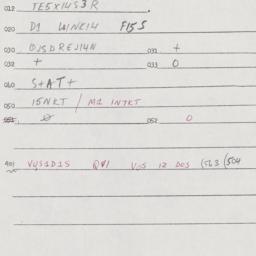 012 TESXI4S3R
020 D1 WINKI4 F15S
030 OJSDREJI4N 031 +
032 + 033 O
040 S+AT+
050 15NKT / M1 INTKT
051 Ø 052 O
401 V4S1D1S QVI VUS 12 DOS (563 (504